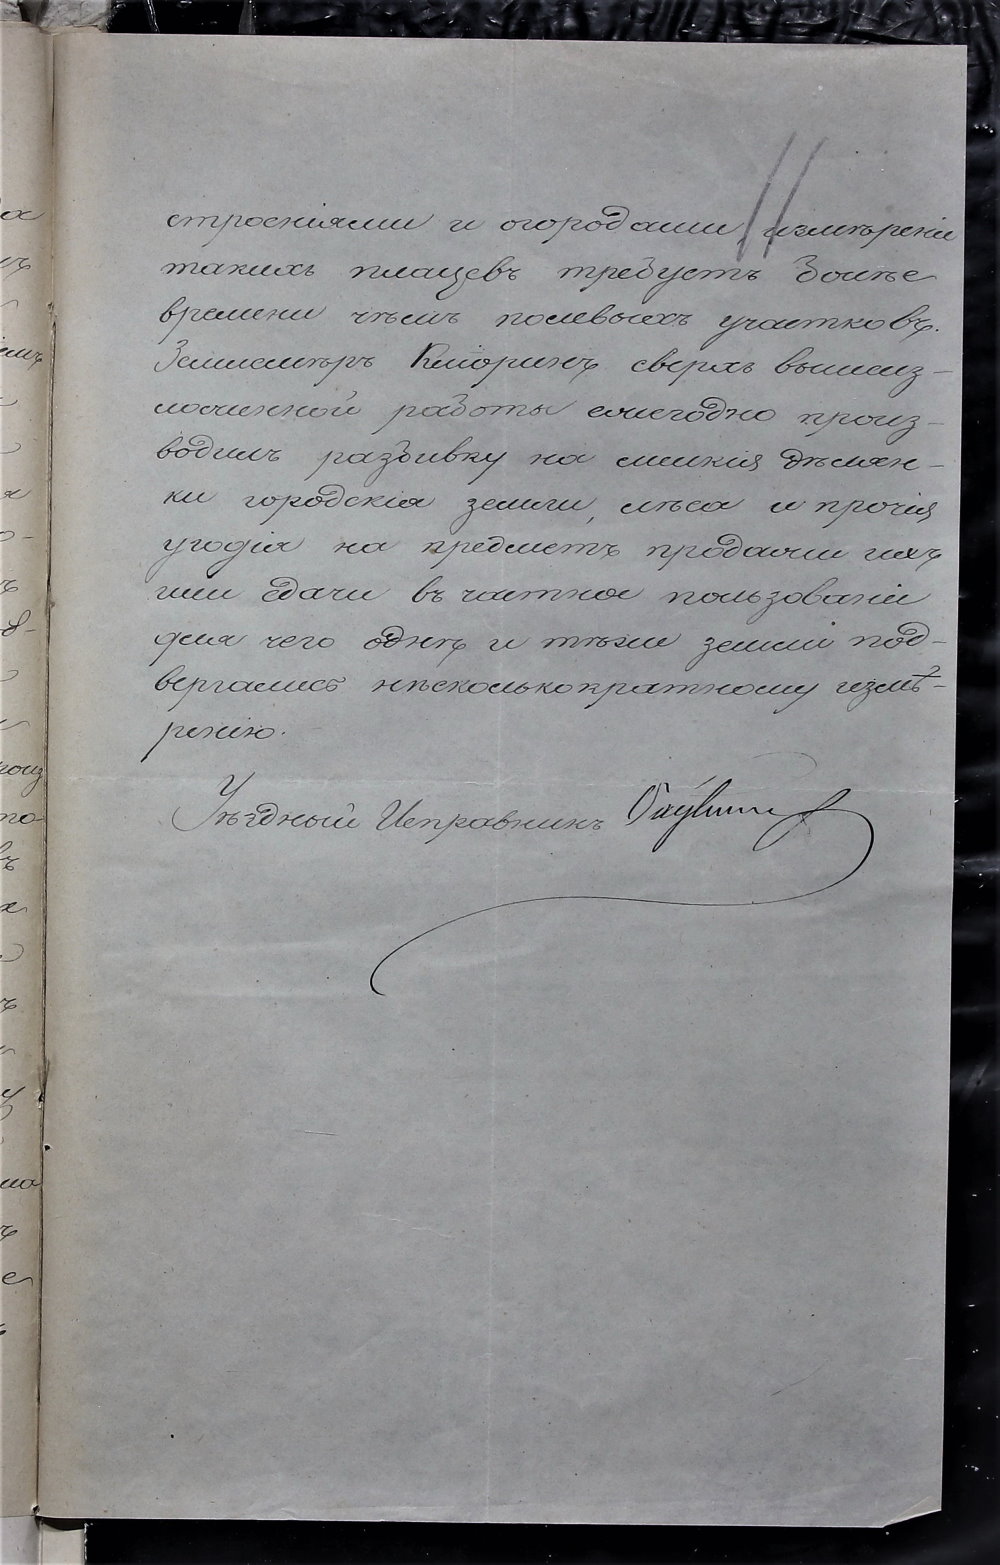 строеніями и огородами измѣреніе
такихъ плацевъ требуетъ болѣе
времени чѣмъ полевыхъ участковъ.
Землемѣръ сверхъ вышеиз-
ложенной работы ежегодно произ-
водилъ разбивку на мелкія дѣлян-
ки городскія земли, лѣса и прочія
угодія на предметъ продажи ихъ
или сдачи въ частное пользованіе
для чего однѣ и тѣже земли под-
вергались нѣсколькократному измѣ-
ренію.
Уѣздный Исправникъ